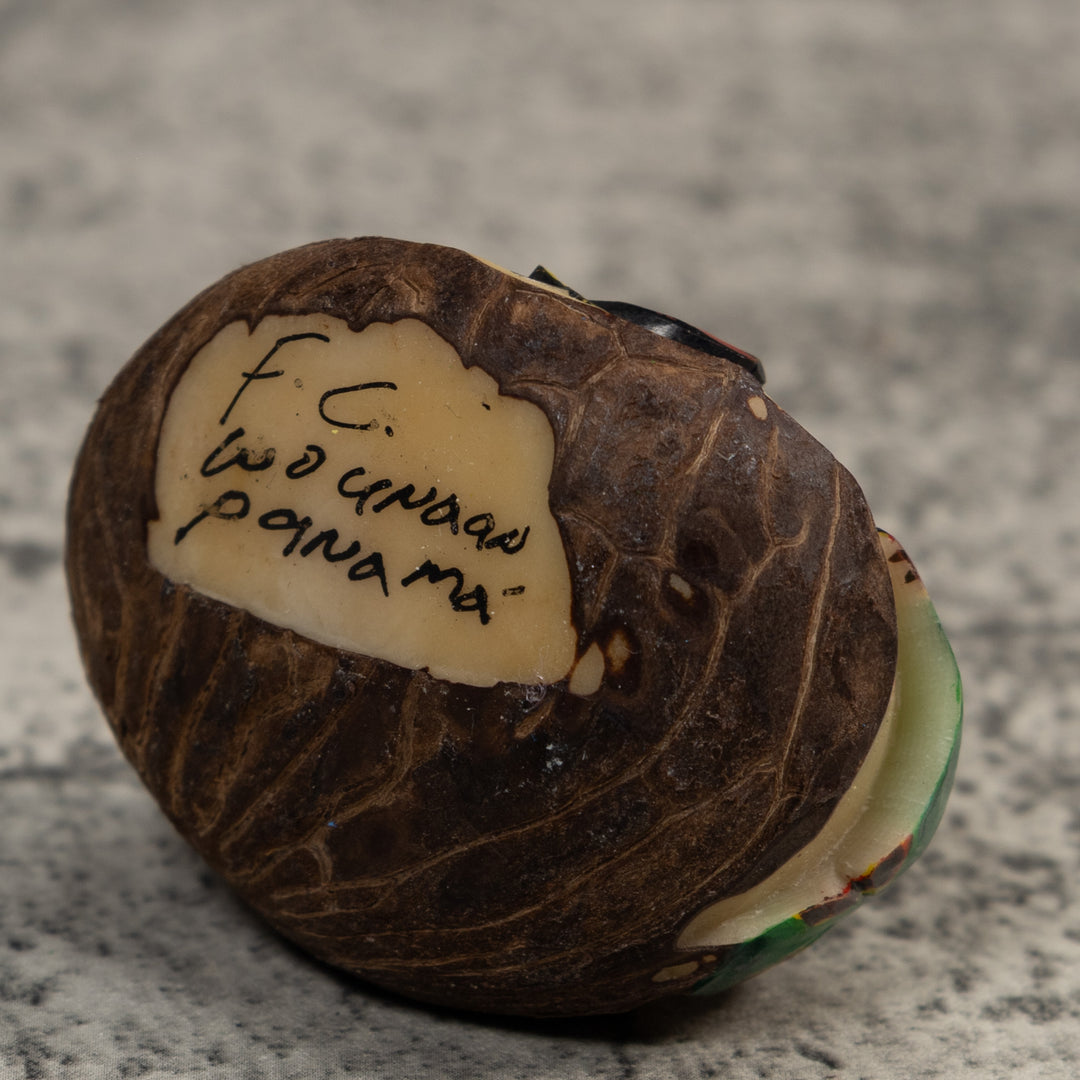 F. C.
Wounaan
Panamá